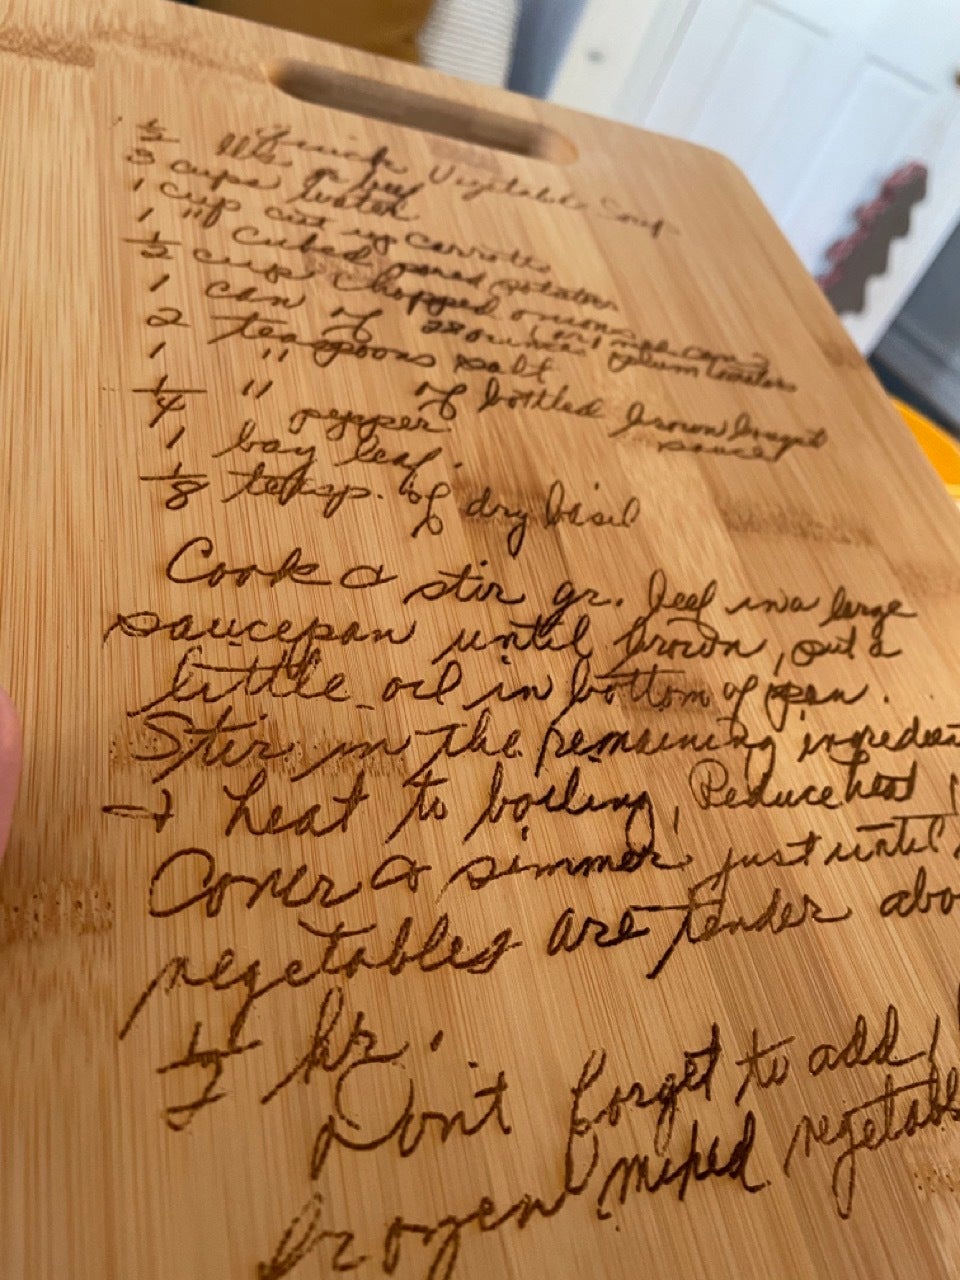 Quick Vegetable Soup
1/2 lb. gr beef
3 cups water
1 cup cut up carrots
1 " cubed pared potatoes
1/2 cup chopped onions
1 can of 28 ounces plum tomatoes
2 teaspoons salt
1 " of bottled brown bouquet sauce
1/4 " pepper
1 bay leaf.
1/8 teasp. of dry basil
Cook & stir gr. beef in a large
saucepan until brown, put a
little oil in bottom of pan.
Stir in the remaining
→ heat to boiling, Reduce heat
Cover & simmer just until
vegetables are tender
1/2 hr.
Don't forget to add
frozen mixed